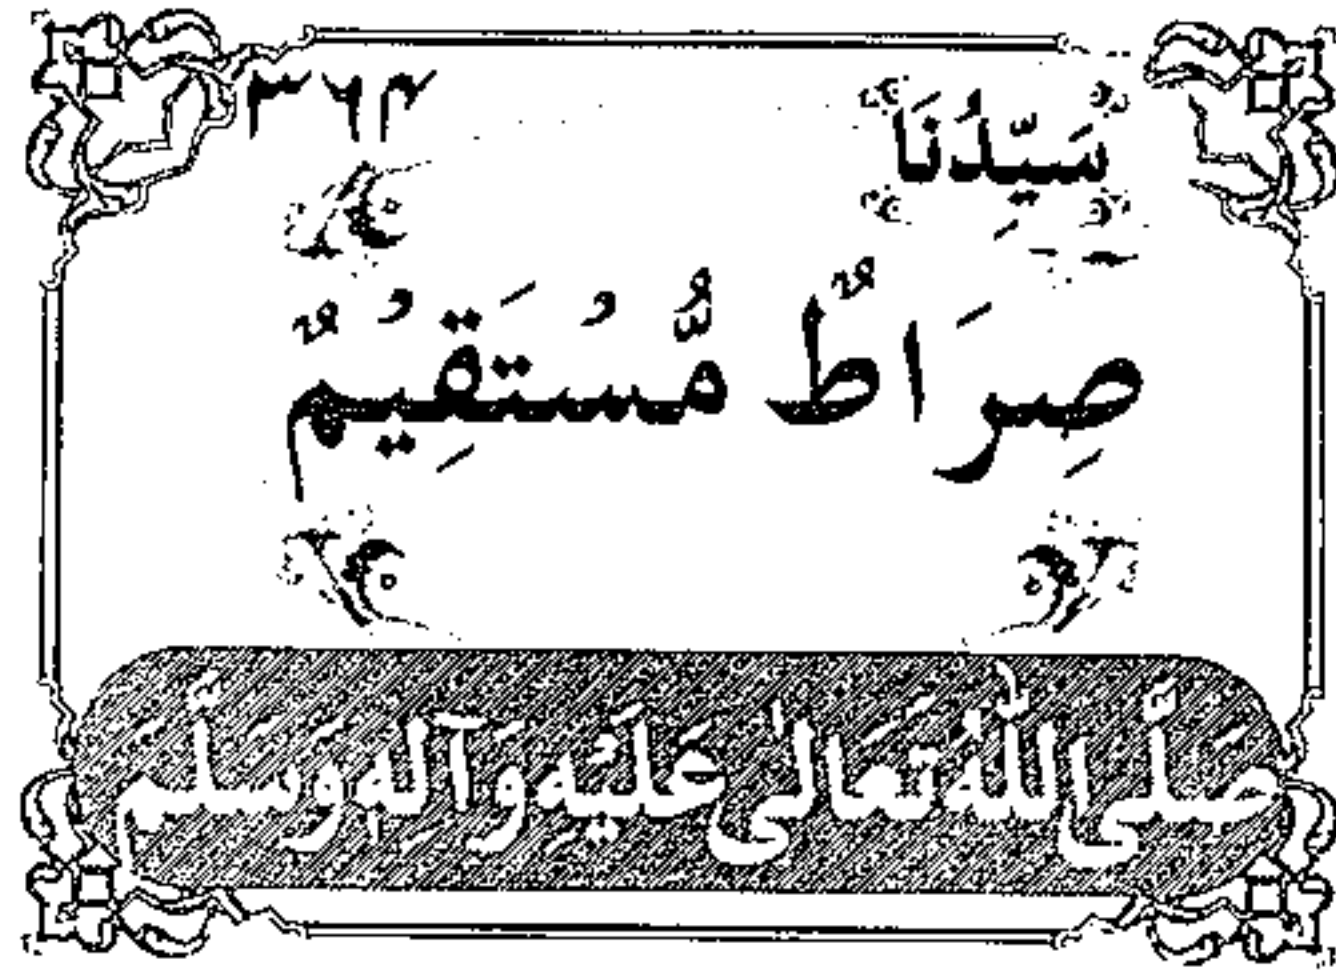 سَيِّدُنَا ۳۶۴
صِرَاطٌ مُّسْتَقِيْمٌ
صَلَّى اللّٰهُ تَعَالٰى عَلَيْهِ وَآلِهٖ وَسَلَّمَ